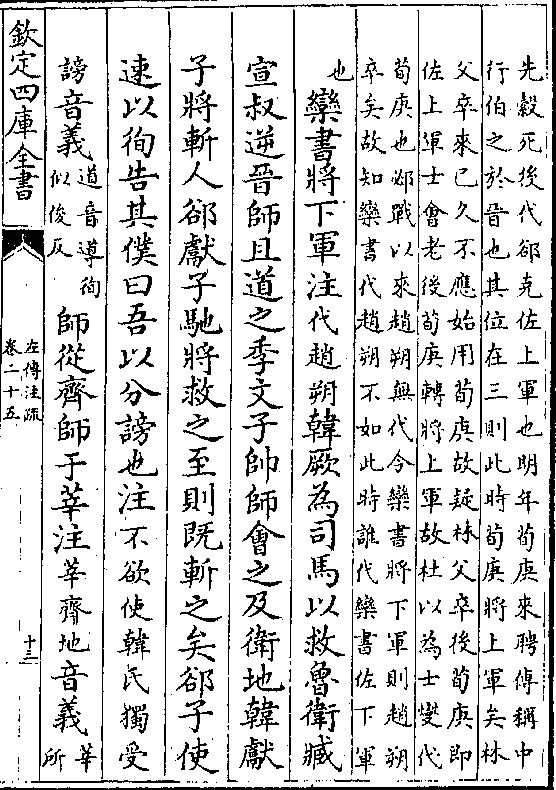 先縠死後代郤克佐上軍也明年荀庚來聘傳稱中
行伯之於晉也其位在三則此時荀庚將上軍矣林
父卒來已久不應始用荀庚故疑林父卒後荀庚即
佐上軍士會老後荀庚轉將上軍故杜以為士燮代
荀庚也邲戰以來趙朔無代今欒書將下軍則趙朔
卒矣故知欒書代趙朔不如此時誰代欒書佐下軍
也
欒書將下軍注代趙朔韓厥為司馬以救魯衛臧
宣叔逆晉師且道之季文子帥師會之及衛地韓獻
子將斬人郤獻子馳將救之至則既斬之矣郤子使
速以徇告其僕曰吾以分謗也注不欲使韓氏獨受
謗音義道音導徇
似俊反
師從齊師于莘注莘齊地音義莘
所
欽定四庫全書
左傳注疏
卷二十五
十三